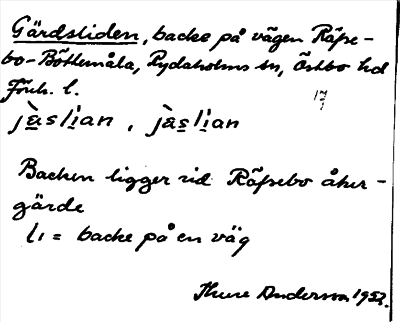 Gärdsliden, backe på vägen Räfse-
bo-Böttemåla, Rydaholms sn, Östbo hd
Jönk. l.
17/1
jä̀slịan , jä̀slịan
Backen ligger vid Räfsebo åker-
gärde
li = backe på en väg
Thure Andersson 1952.